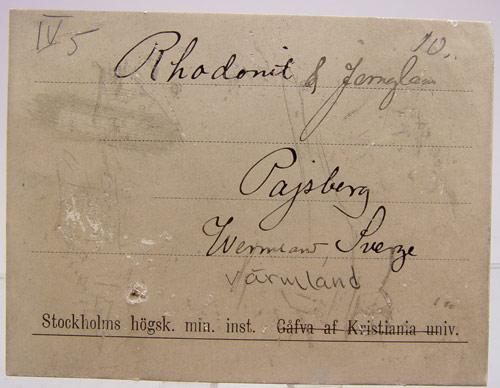 IV5 10.
Rhodonit & Jernglans
Pajsberg
Wermland, Sverge
Värmland
Stockholms högsk. min. inst. Gåfva af Kristiania univ.